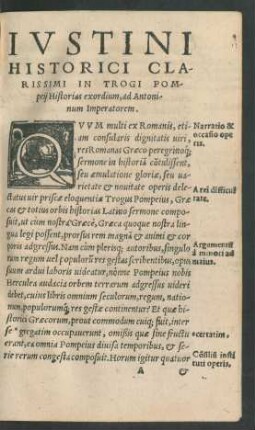 IVSTINI
HISTORICI CLA-
RISSIMI IN TROGI POM-
peij Historias exordium, ad Antoni-
num Imperatorem.
QVVM multi ex Romanis, eti-
am consularis dignitatis uiri,
res Romanas Græco peregrinoq́;
sermone in historiã cõtulissent,
seu æmulatione gloriæ, seu ua-
rietate & nouitate operis dele-
ctatus uir priscæ eloquentiæ Trogus Pompeius, Græ-
cas & totius orbis historias Latino sermone compo-
suit, ut cum nostra Græcè, Græca quoque nostra lin-
gua legi possent, prorsus rem magni & animi & cor-
poris adgressus. Nam cum plerisq; autoribus, singulo
rum regum uel populorũ res gestas scribentibus, opus
suum ardui laboris uideatur, nõne Pompeius nobis
Herculea audacia orbem terrarum adgressus uideri
debet, cuius libris omnium seculorum, regum, natio-
num, populorumq́; res gestæ continentur? Et quæ hi-
storici Græcorum, prout commodum cuiq; fuit, inter
se* girgatim occupuerunt, omissis quæ sine fructu
erant, ea omnia Pompeius diuisa temporibus, & se-
rie rerum congesta composuit. Horum igitur quatuor
A &
Narratio &
occasio ope
ris.
A rei difficul
tate.
Argumentũ
à minori ad
maius.
*certatim,
Cõsiliũ insti
tuti operis.